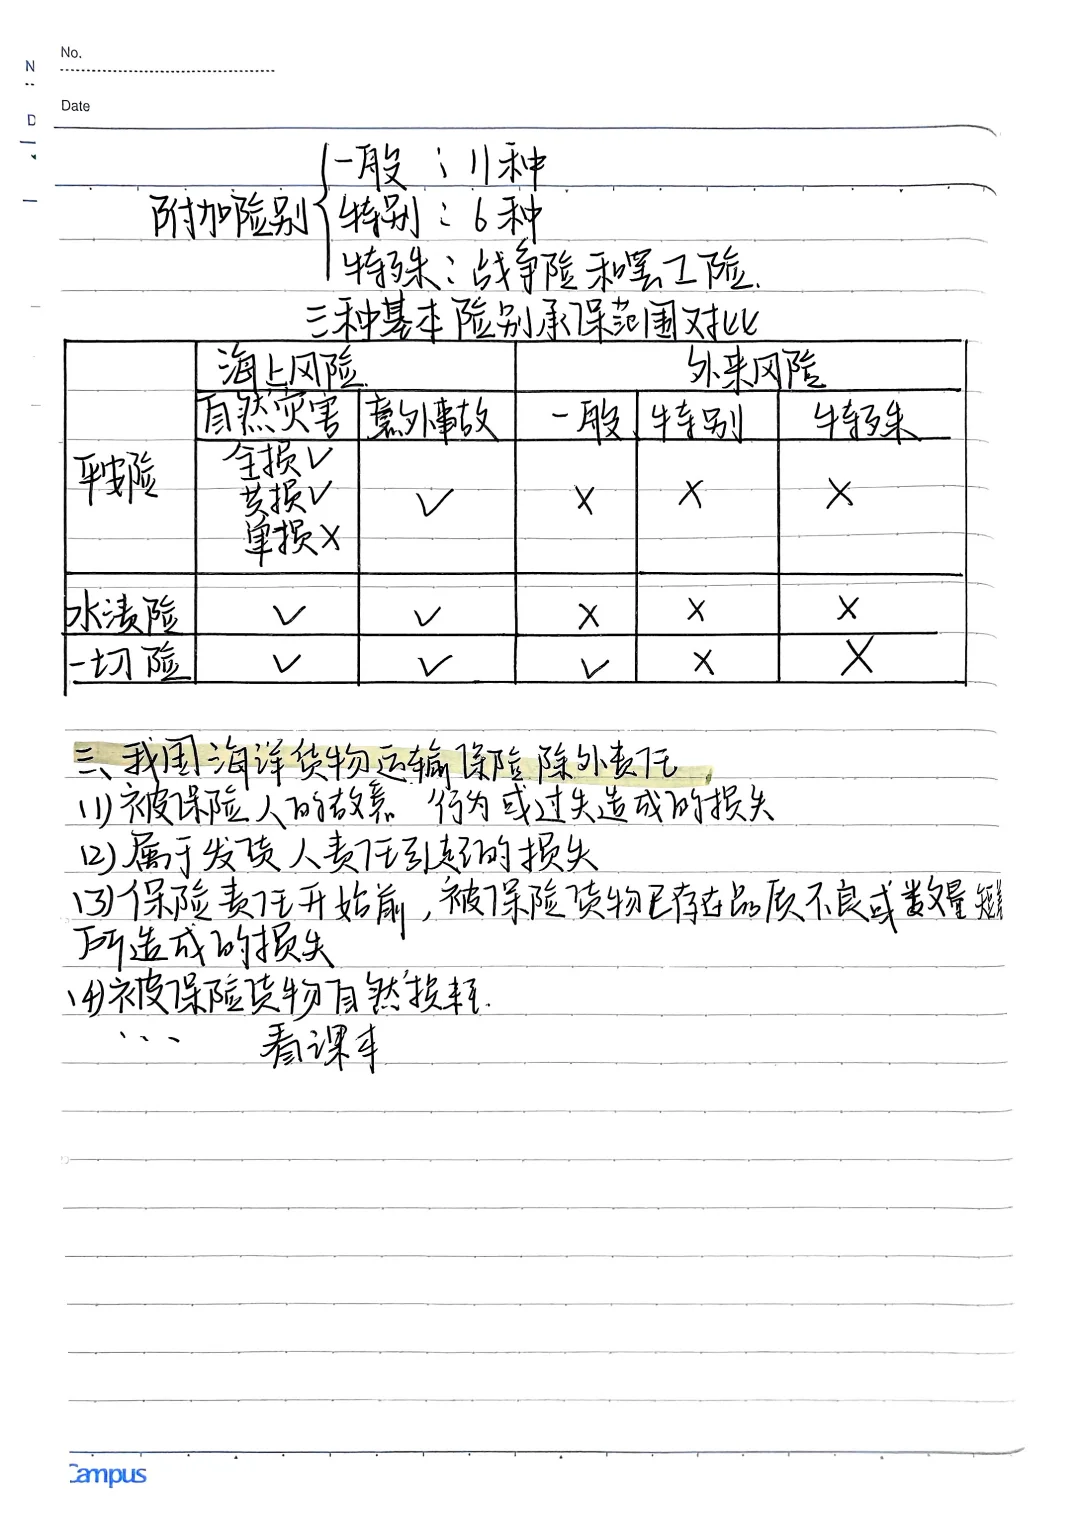 No.
Date
N
D
附加险别
一般:11种
特别:6种
特殊:战争险和罢工险.
三种基本险别承保范围对比
海上风险 外来风险
自然灾害 意外事故 一般 特别 特殊
平安险 全损√ 共损√ 单损× √ × × ×
水渍险 √ √ × × ×
一切险 √ √ √ × ×
三、我国海洋货物运输保险除外责任
(1)被保险人的故意 行为或过失造成的损失
(2)属于发货人责任引起的损失
(3)保险责任开始前,被保险货物已存在品质不良或数量短差
所造成的损失
(4)被保险货物自然损耗.
... 看课本
Campus